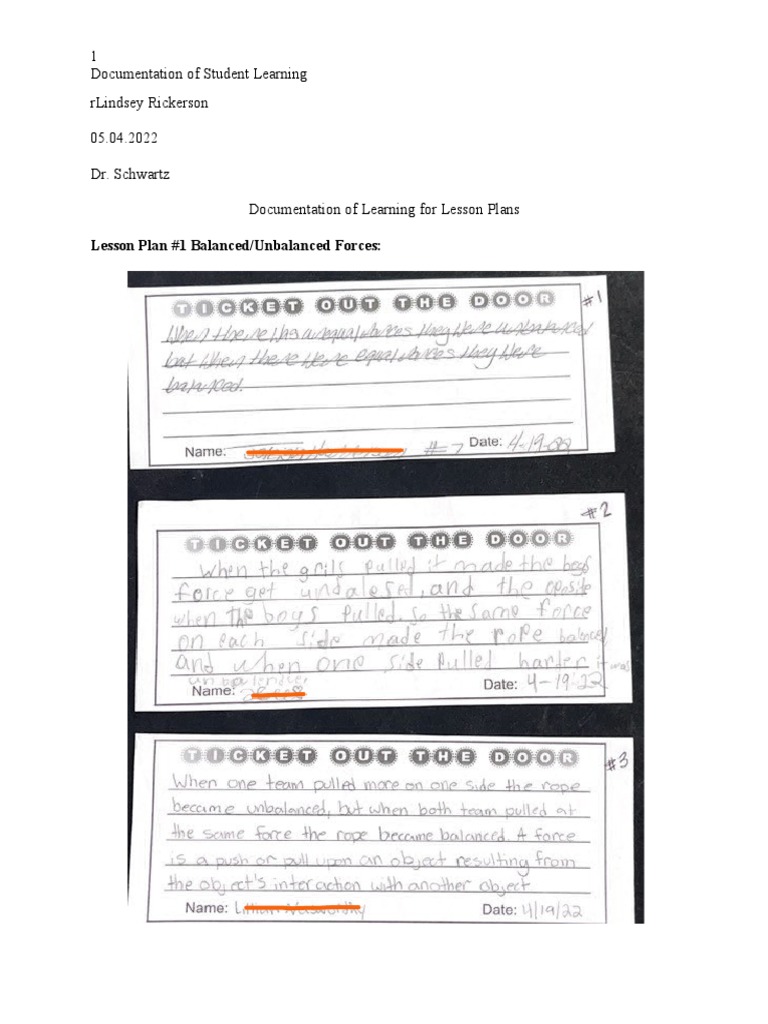 1
Documentation of Student Learning
rLindsey Rickerson
05.04.2022
Dr. Schwartz
Documentation of Learning for Lesson Plans
Lesson Plan #1 Balanced/Unbalanced Forces:
TICKET OUT THE DOOR #1
When there equal forces they were
but when there were equal forces they were
balanced.
Name: #7 Date: 4-19-22
#2
TICKET OUT THE DOOR
When the grils pulled it made the boys
force get undalesed, and the oposite
when the boys pulled. so the same force
on each side made the rope balanced
and when one side pulled harder it was
Name: Date: 4-19-22
TICKET OUT THE DOOR #3
When one team pulled more on one side the rope
became unbalanced, but when both team pulled at
the same force the rope became balanced. A force
is a push or pull upon an object resulting from
the object's interaction with another object
Name: Date: 4/19/22